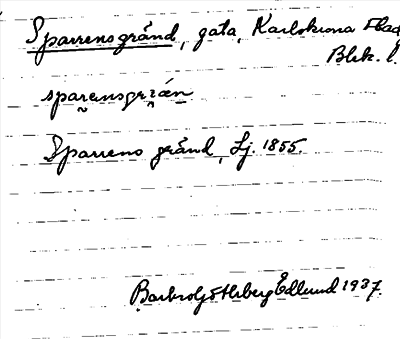 Sparrensgränd, gata, Karlskrona stad
Blek. l.
sparensgrän
Sparrens gränd, Lj. 1855.
Barbro Götherberg Edlund 1937.